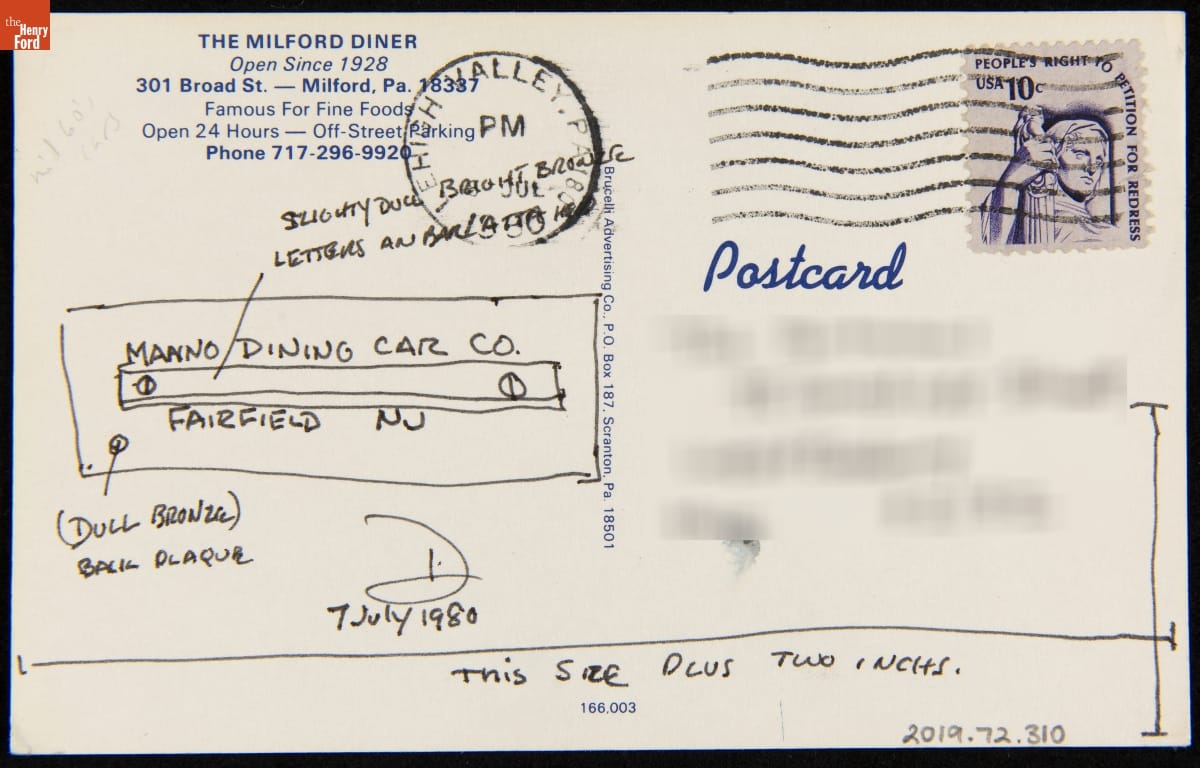 the
Henry
Ford
THE MILFORD DINER
Open Since 1928
301 Broad St. — Milford, Pa. 18337
Famous For Fine Foods
Open 24 Hours — Off-Street Parking
Phone 717-296-9920
LEHIGH VALLEY, PA 180
PM
JUL
1980
PEOPLE'S RIGHT TO PETITION FOR REDRESS
USA 10c
SLIGHTY DULL BRIGHT BRONZE
LETTERS AN BAR
Postcard
Brucelli Advertising Co., P.O. Box 187, Scranton, Pa. 18501
MANNO DINING CAR CO.
FAIRFIELD NJ
(DULL BRONZE)
BACK PLAQUE
D
7 JULY 1980
THIS SIZE PLUS TWO INCHS.
166,003
2019.72.310